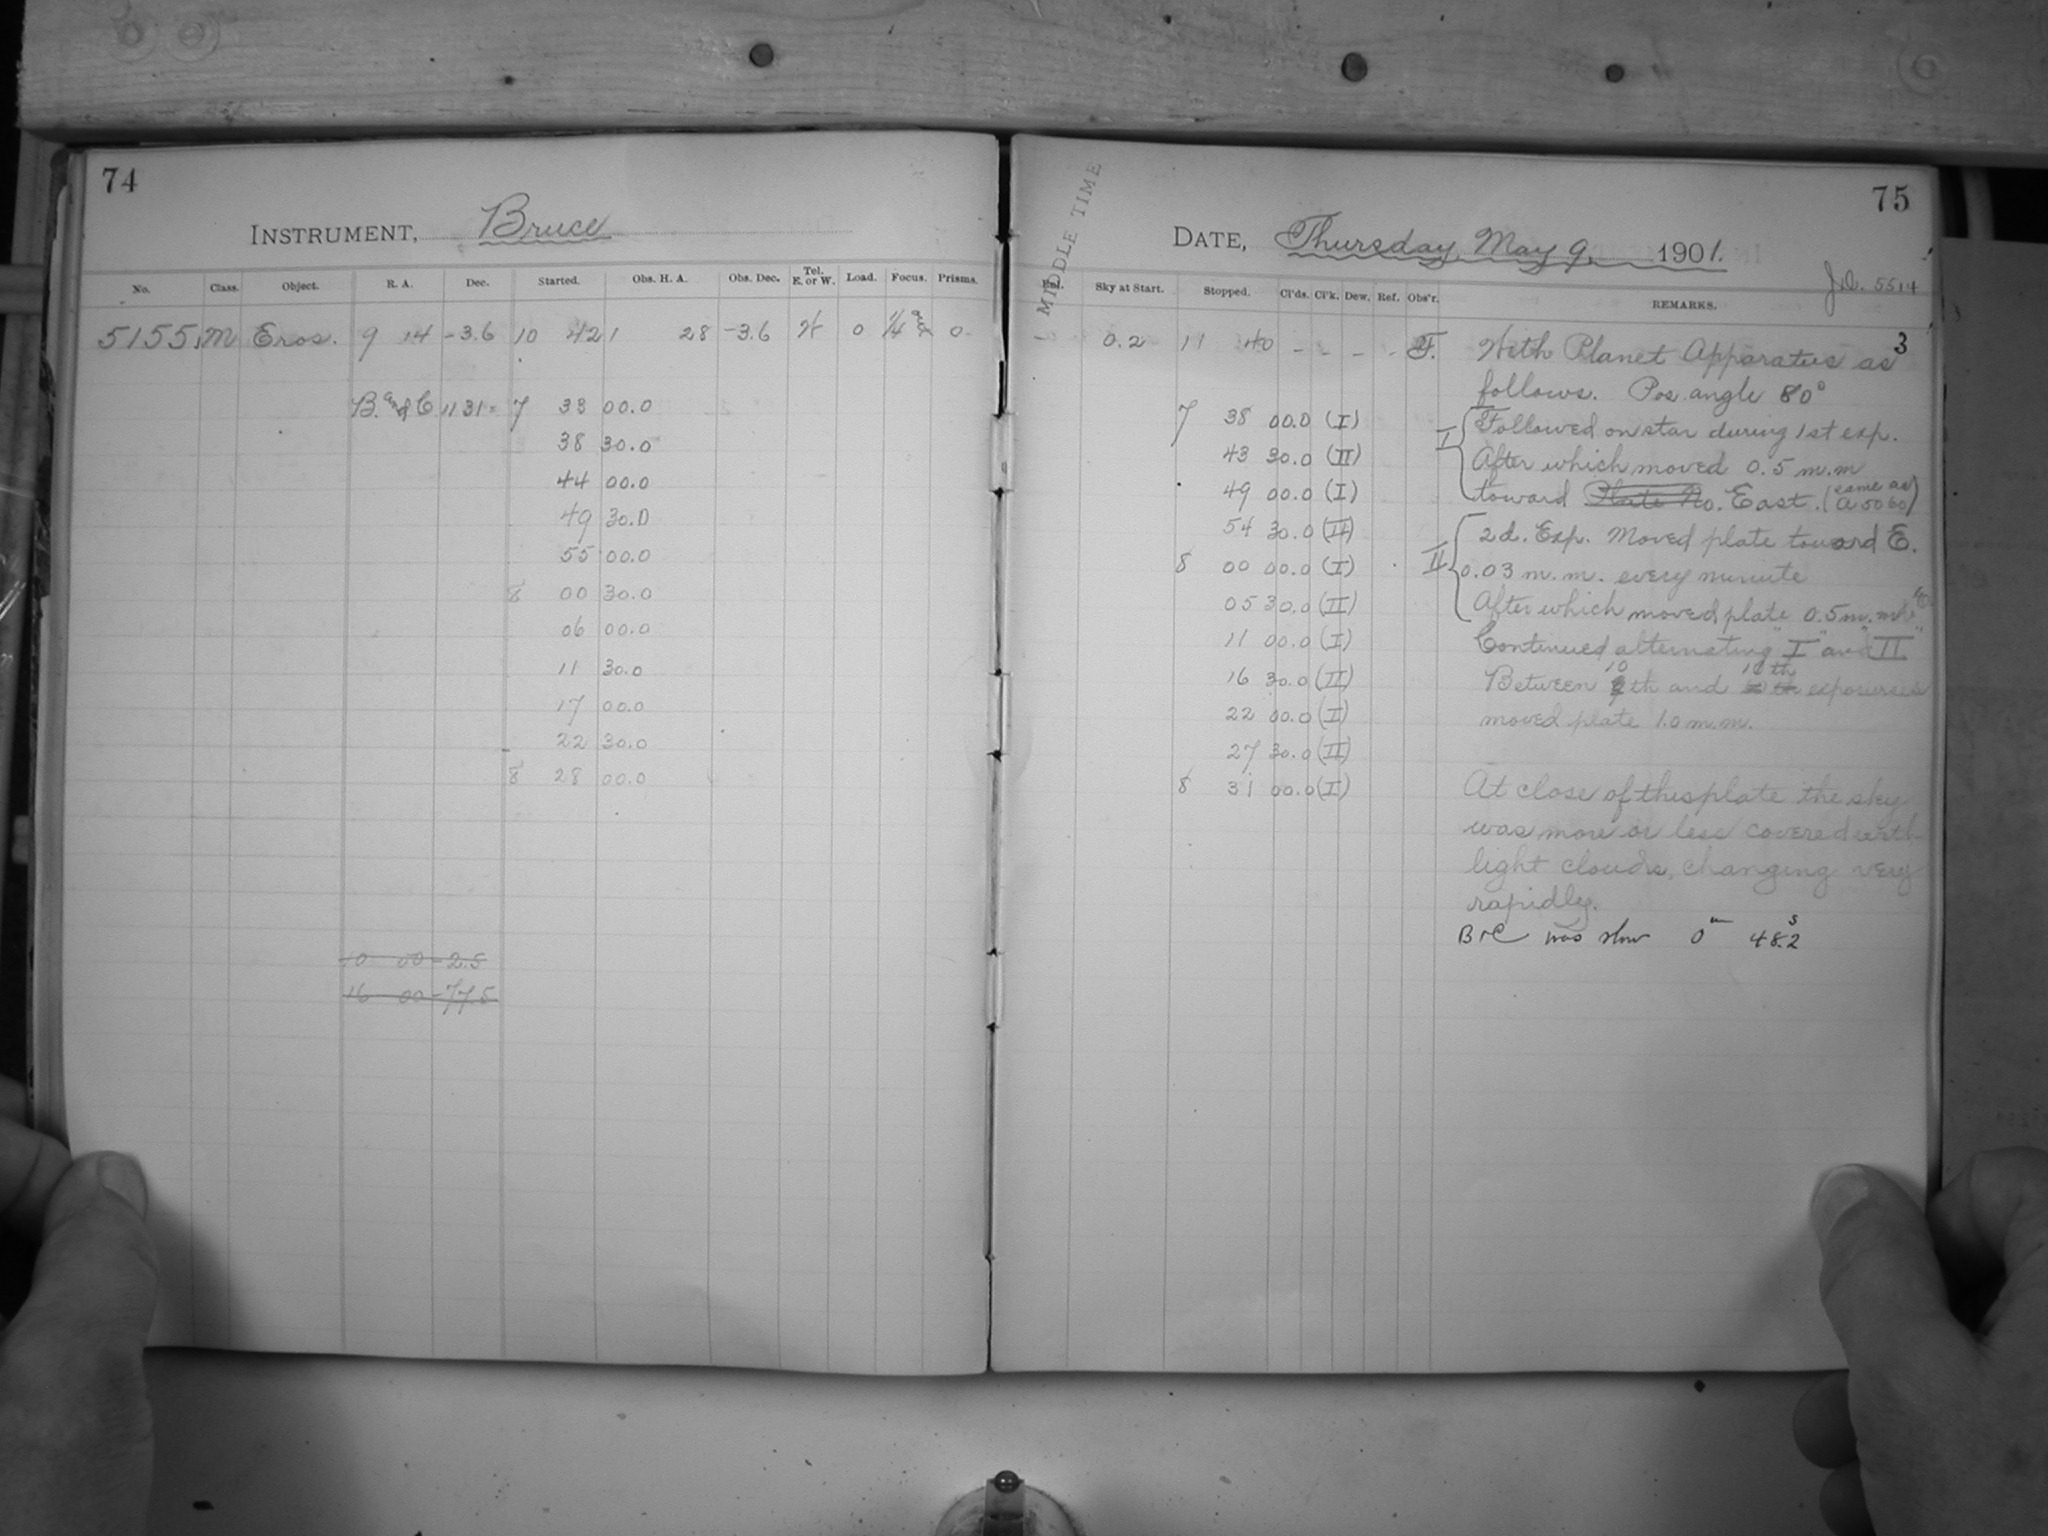 74
INSTRUMENT, Bruce
No. Class. Object. R. A. Dec. Started. Obs. H. A. Obs. Dec. Tel. E. or W. Load. Focus. Prisms.
5155 M Eros. 9 14 -3.6 10 42 1 28 -3.6 W 0 1/4 out 0
B. and C 11 31= 7 33 00.0
38 30.0
44 00.0
49 30.0
55 00.0
8 00 30.0
06 00.0
11 30.0
17 00.0
22 30.0
8 28 00.0
10 00 -2.5
16 00 -77.5
MIDDLE TIME
75
DATE, Thursday, May 9, 1901.
J.D. 5514
Sky at Start. Stopped. Cl'ds. Cl'k. Dew. Ref. Obs'r. REMARKS.
0.2 11 40 - - - - F. With Planet Apparatus as 3
follows. Pos. angle 80°
7 38 00.0 (I) I Followed on star during 1st exp.
43 30.0 (II) After which moved 0.5 m.m
49 00.0 (I) toward Plate No. East. (same as A 5060)
54 30.0 (II) 2d. Exp. Moved plate toward E.
8 00 00.0 (I) II 0.03 m.m. every minute
05 30.0 (II) After which moved plate 0.5 m.m. E.
11 00.0 (I) Continued alternating "I" and "II"
16 30.0 (II) Between 10 th and 11th exposures
22 00.0 (I) moved plate 1.0 m.m.
27 30.0 (II)
8 31 00.0 (I) At close of this plate the sky
was more or less covered with
light clouds, changing very
rapidly.
B & C was slow 0m 48.2s